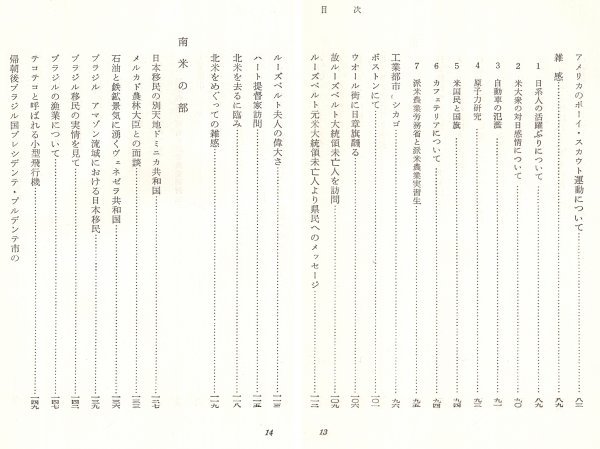 目次
アメリカのボーイ・スカウト運動について……八三
雑感……八九
1 日系人の活躍ぶりについて……八九
2 米大衆の対日感情について……九〇
3 自動車の氾濫……九一
4 原子力研究……九三
5 米国民と国旗……九四
6 カフェテリアについて……九四
7 派米農業労務者と派米農業実習生……九五
工業都市シカゴ……九六
ボストンにて……一〇一
ウオール街に日章旗翻る……一〇六
故ルーズベルト大統領未亡人を訪問……一〇九
ルーズベルト元米大統領未亡人より県民へのメッセージ……一一二
13
ルーズベルト夫人の偉大さ……一一三
ハート提督家訪問……一一五
北米を去るに臨み……一一八
北米をめぐっての雑感……一一九
南米の部
日本移民の別天地ドミニカ共和国……一二七
メルカド農林大臣との面談……一三三
石油と鉄鉱景気に湧くヴェネゼラ共和国……一三六
ブラジル アマゾン流域における日本移民……一三九
ブラジル移民の実情を見て……一四二
ブラジルの漁業について……一四七
テコテコと呼ばれる小型飛行機……一四九
帰朝後ブラジル国プレシデンテ・プルデンテ市の
14